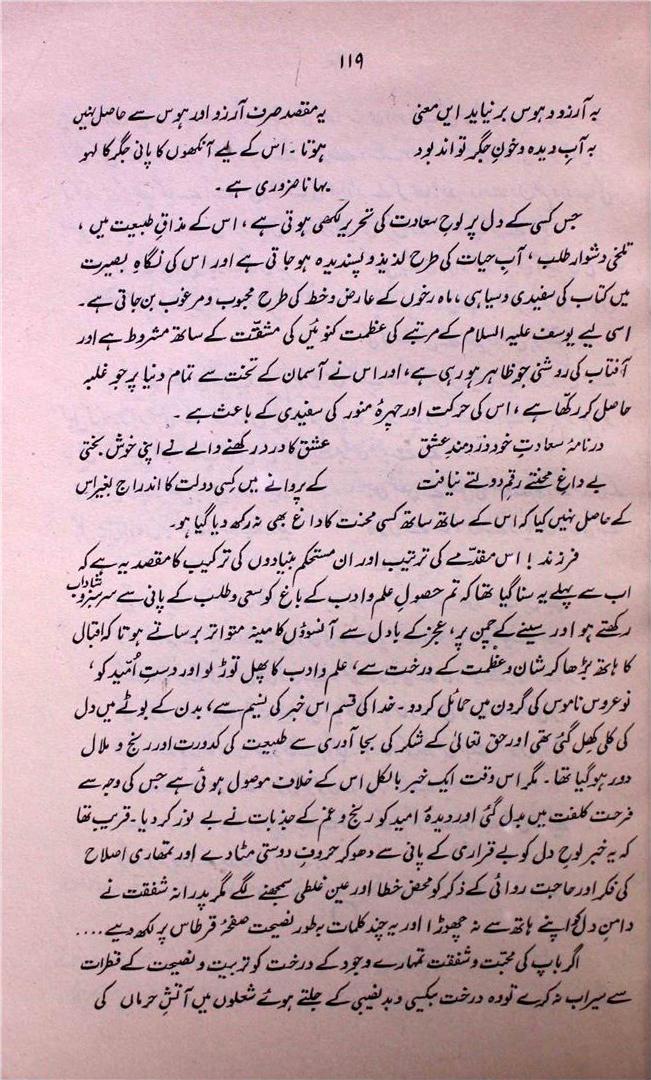 ۱۱۹
بہ آرزو و ہوس برنیاید ایں معنی یہ مقصد صرف آرزو اور ہوس سے حاصل نہیں
بہ آبِ دیدہ و خونِ جگر تواند بود ہوتا ۔ اس کے لیے آنکھوں کا پانی جگر کا لہو
بہانا ضروری ہے ۔
جس کسی کے دل پر لوحِ سعادت کی تحریر لکھی ہوتی ہے ، اس کے مذاقِ طبیعت میں ،
تلخیِ دشوار طلب ، آبِ حیات کی طرح لذیذ و پسندیدہ ہوجاتی ہے اور اس کی نگاہِ بصیرت
میں کتاب کی سفیدی و سیاہی ، ماہ رخوں کے عارض و خط کی طرح محبوب و مرغوب بن جاتی ہے ۔
اسی لیے یوسف علیہ السلام کے مرتبے کی عظمت کنوئیں کی مشقّت کے ساتھ مشروط ہے اور
آفتاب کی روشنی جو ظاہر ہو رہی ہے ، اور اس نے آسمان کے تخت سے تمام دنیا پر جو غلبہ
حاصل کر رکھا ہے ، اس کی حرکت اور چہرۂ منور کی سفیدی کے باعث ہے ۔
درنامۂ سعادتِ خود دردمندِ عشق عشق کا درد رکھنے والے نے اپنی خوش بختی
بے داغِ محنتے رقمِ دولتے نیافت کے پروانے میں کِسی دولت کا اندراج بغیر اس
کے حاصل نہیں کیا کہ اس کے ساتھ ساتھ کسی محنت کا داغ بھی نہ رکھ دیا گیا ہو۔
فرزند ! اس مقدّمے کی ترتیب اور ان مستحکم بنیادوں کی ترکیب کا مقصد یہ ہے کہ
اب سے پہلے یہ سنا گیا تھا کہ تم حصولِ علم و ادب کے باغ کو سعی و طلب کے پانی سے سرسبز و شاداب
رکھتے ہو اور سینے کے چمن پر ، عجز کے بادل سے آنسوؤں کا مینہ متواتر برساتے ہو تاکہ اقبال
کا ہاتھ بڑھا کر شان و عظمت کے درخت سے ، علم و ادب کا پھل توڑ لو اور دستِ اُمّید کو ،
نوعروسِ ناموس کی گردن میں حمائل کردو ۔ خدا کی قسم اس خبر کی نسیم سے ، بدن کے بوٹے میں دل
کی کلی کھِل گئی تھی اور حق تعالیٰ کے شکر کی بجا آوری سے طبیعت کی کدورت اور رنج و ملال
دور ہوگیا تھا ۔ مگر اس وقت ایک خبر بالکل اس کے خلاف موصول ہوئی ہے جس کی وجہ سے
فرحت کلفت میں بدل گئی اور دیدۂ امید کو رنج و غم کے جذبات نے بے نور کر دیا ۔ قریب تھا
کہ یہ خبر لوحِ دل کو بے قراری کے پانی سے دھو کر حروفِ دوستی مٹا دے اور تمھاری اصلاح
کی فکر اور حاجت روائی کے ذکر کو محض خطا اور عین غلطی سمجھنے لگے مگر پدرانہ شفقت نے
دامنِ دل کو اپنے ہاتھ سے نہ چھوڑا اور یہ چند کلمات بہ طور نصیحت صفحۂ قرطاس پر لکھ دیے ....
اگر باپ کی محبت و شفقت تمہارے وجود کے درخت کو تربیت و نصیحت کے قطرات
سے سیراب نہ کرے تو وہ درخت بیکسی و بدنصیبی کے جلتے ہوئے شعلوں میں آتشِ حرماں کی